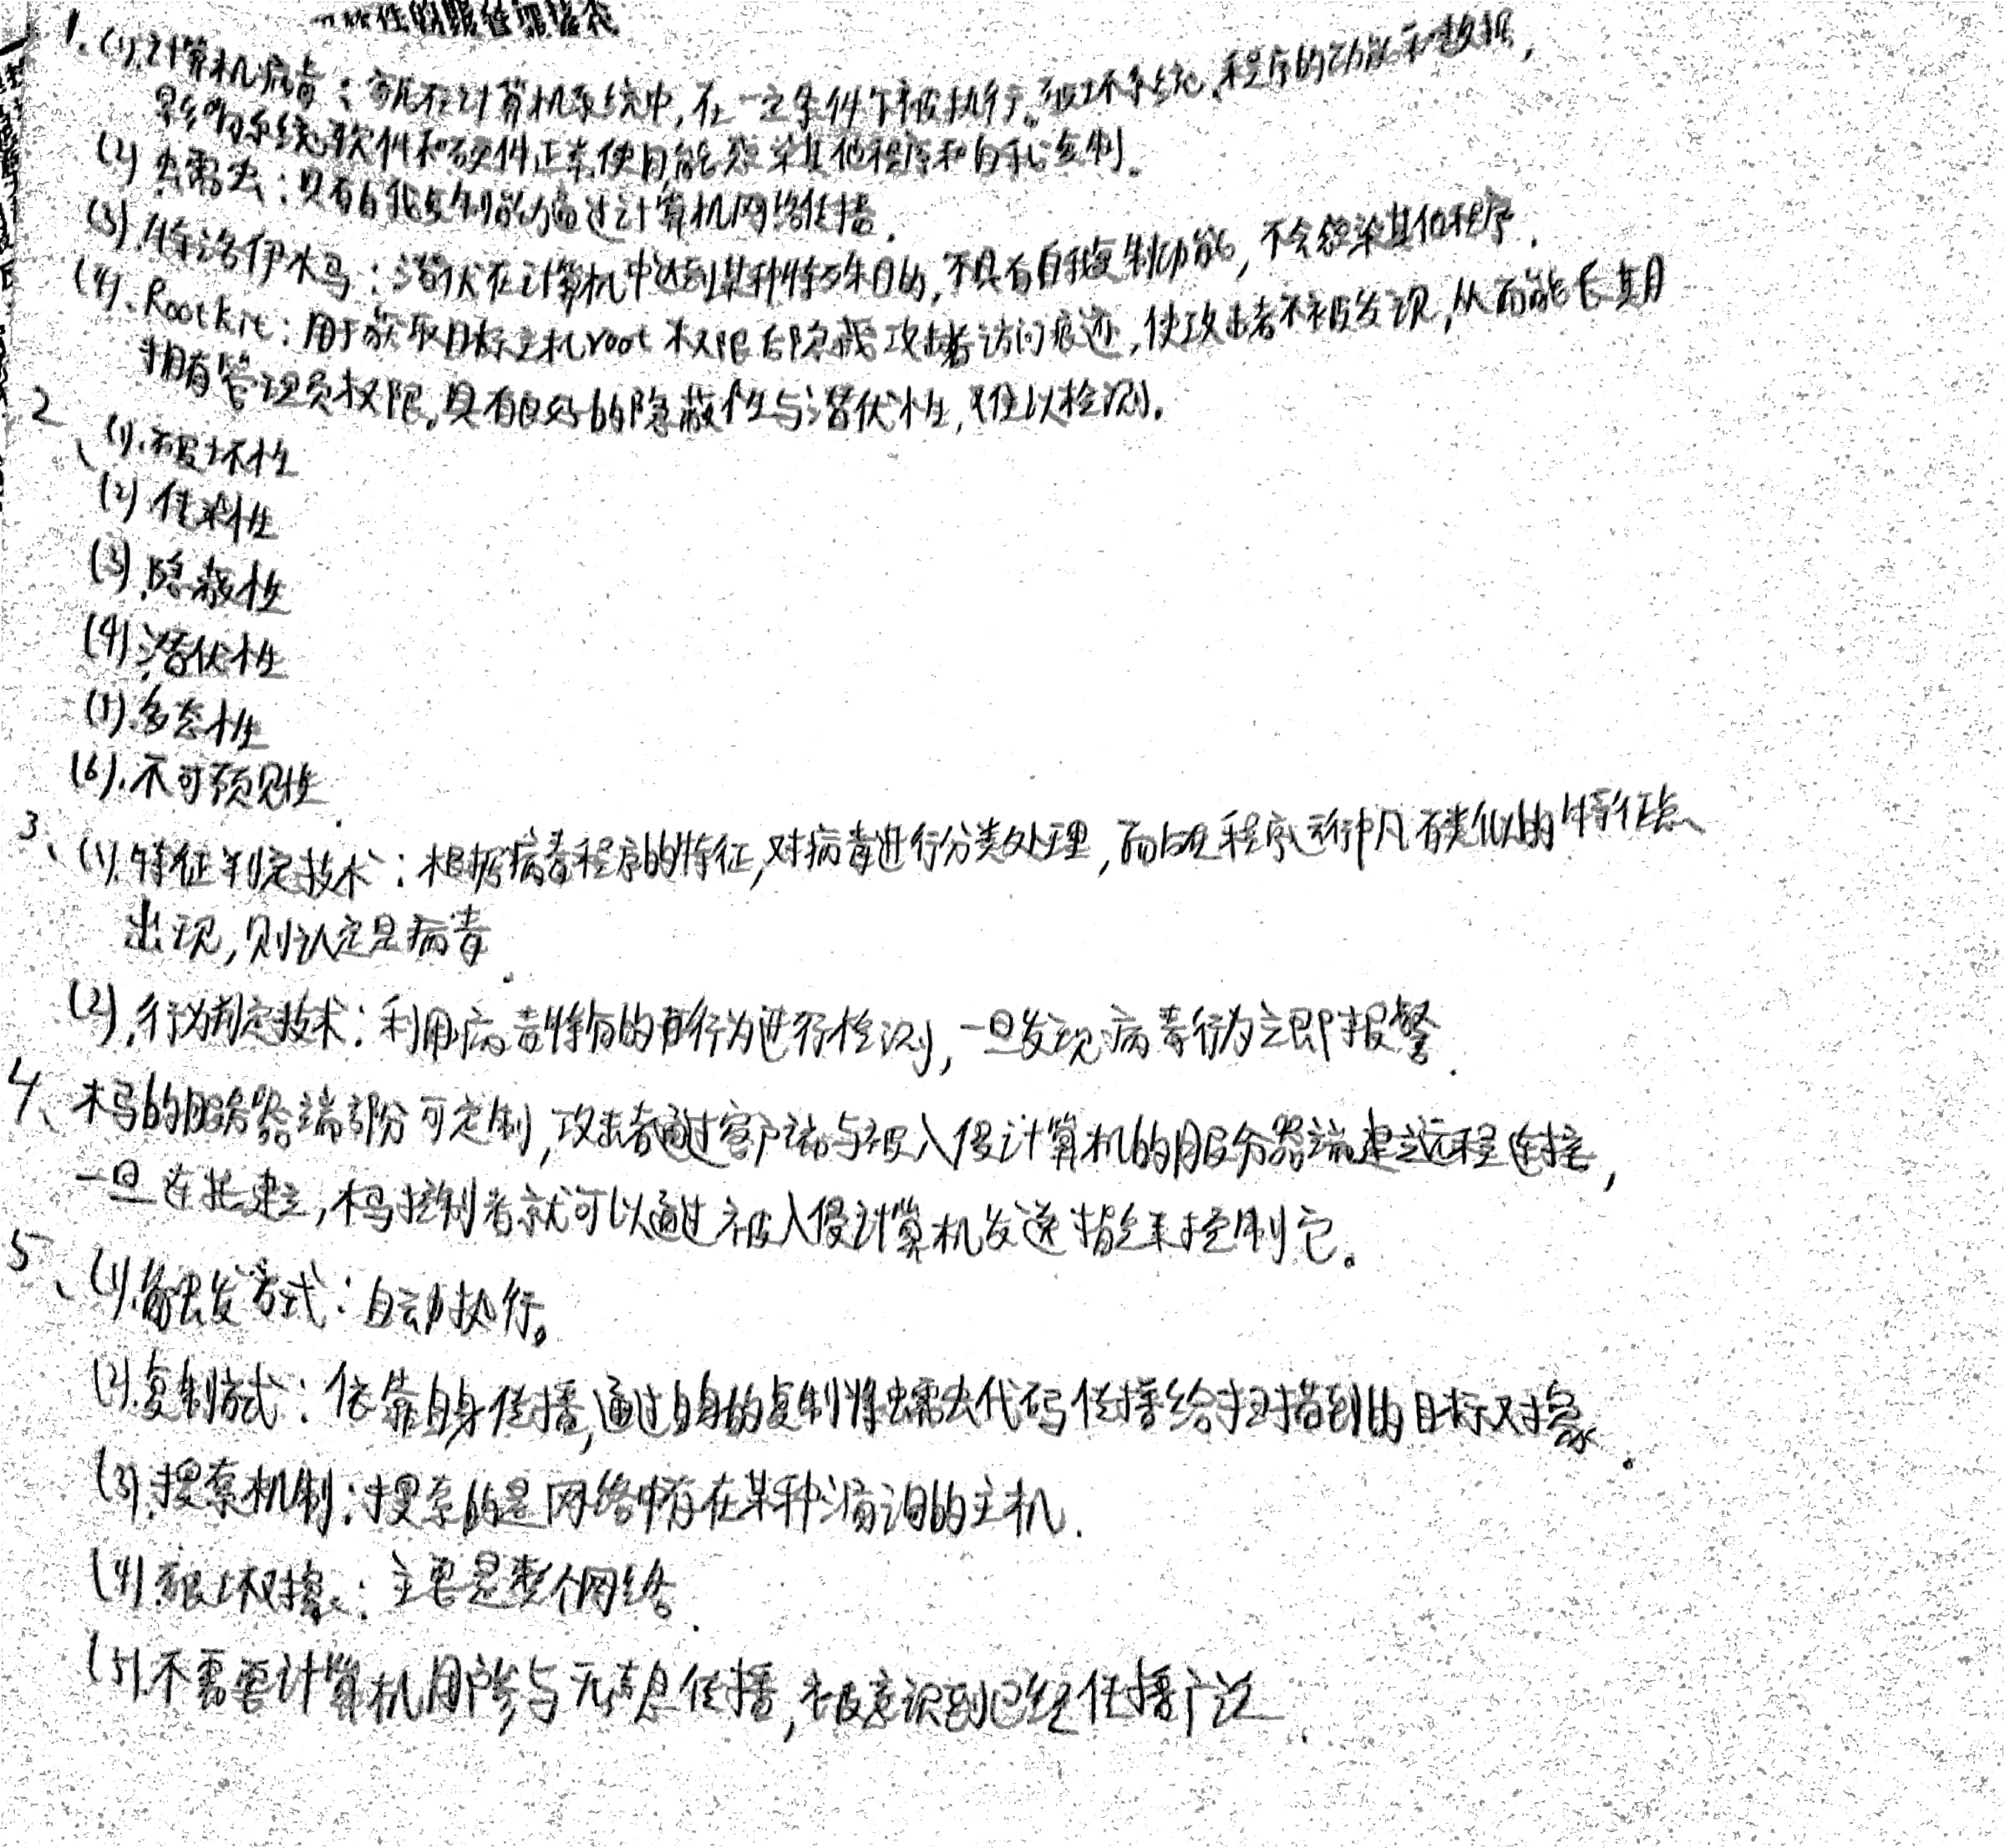 1.(1).计算机病毒:寄生在计算机系统中,在一定条件下被执行。破坏系统、程序的功能和数据,
影响系统软件和硬件正常使用能感染其他程序和自我复制。
(2) 蠕虫:具有自我复制能力通过计算机网络传播.
(3).特洛伊木马:潜伏在计算机中达到某种特殊目的,不具有自我复制功能,不会感染其他程序.
(4).Rootkit:用于获取目标主机root权限后隐藏攻击者访问痕迹,使攻击者不被发现,从而能长期
拥有管理员权限。具有良好的隐蔽性与潜伏性,难以检测.
2、(1).破坏性
(2) 传染性
(3).隐蔽性
(4).潜伏性
(5).多态性
(6).不可预见性.
3、(1).特征判定技术:根据病毒程序的特征,对病毒进行分类处理,而在程序运行中凡有类似的特征点
出现,则认定是病毒.
(2).行为判定技术:利用病毒特有的行为进行检测,一旦发现病毒行为立即报警.
4、木马的服务器端部分可定制,攻击者通过客户端与被入侵计算机的服务器端建立远程连接,
一旦连接建立,木马控制者就可以通过被入侵计算机发送指令来控制它。
5、(1).触发方式:自动执行。
(2).复制方式:依靠自身传播,通过自身的复制将蠕虫代码传播给扫描到的目标对象.
(3).搜索机制:搜索的是网络中存在某种漏洞的主机.
(4).破坏对象:主要是整个网络.
(5).不需要计算机用户参与无声息传播,被意识到已经传播广泛.